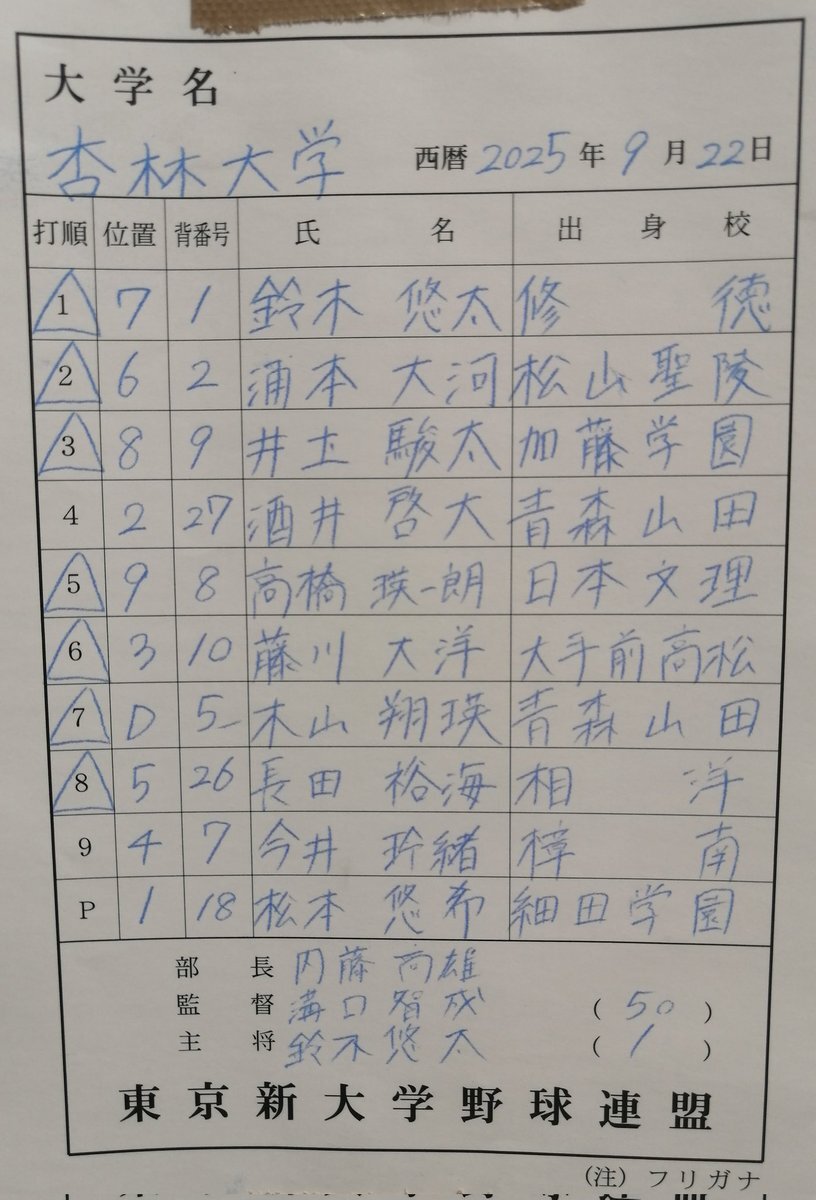 大学名
杏林大学 西暦 2025年 9月 22日
打順 位置 背番号 氏名 出身校
1 7 1 鈴木 悠太 修徳
2 6 2 浦本 大河 松山聖陵
3 8 9 井土 駿太 加藤学園
4 2 27 酒井 啓大 青森山田
5 9 8 高橋 瑛一朗 日本文理
6 3 10 藤川 大洋 大手前高松
7 D 5 木山 翔瑛 青森山田
8 5 26 長田 裕海 相洋
9 4 7 今井 玲緒 樟南
P 1 18 松本 悠希 細田学園
部長 内藤 高雄
監督 溝口 智成 (50)
主将 鈴木 悠太 (1)
東京新大学野球連盟
(注) フリガナ